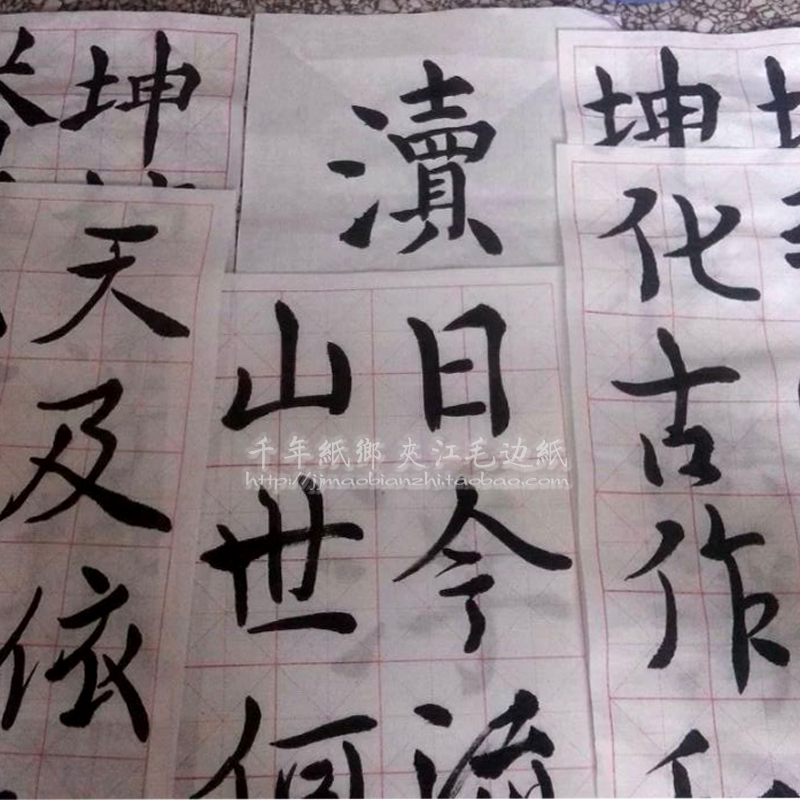 坤
瀆
坤
天及依
山世何
日今流
化古作
千年紙鄉 夾江毛边紙
http://jjmaobianzhi.taobao.com